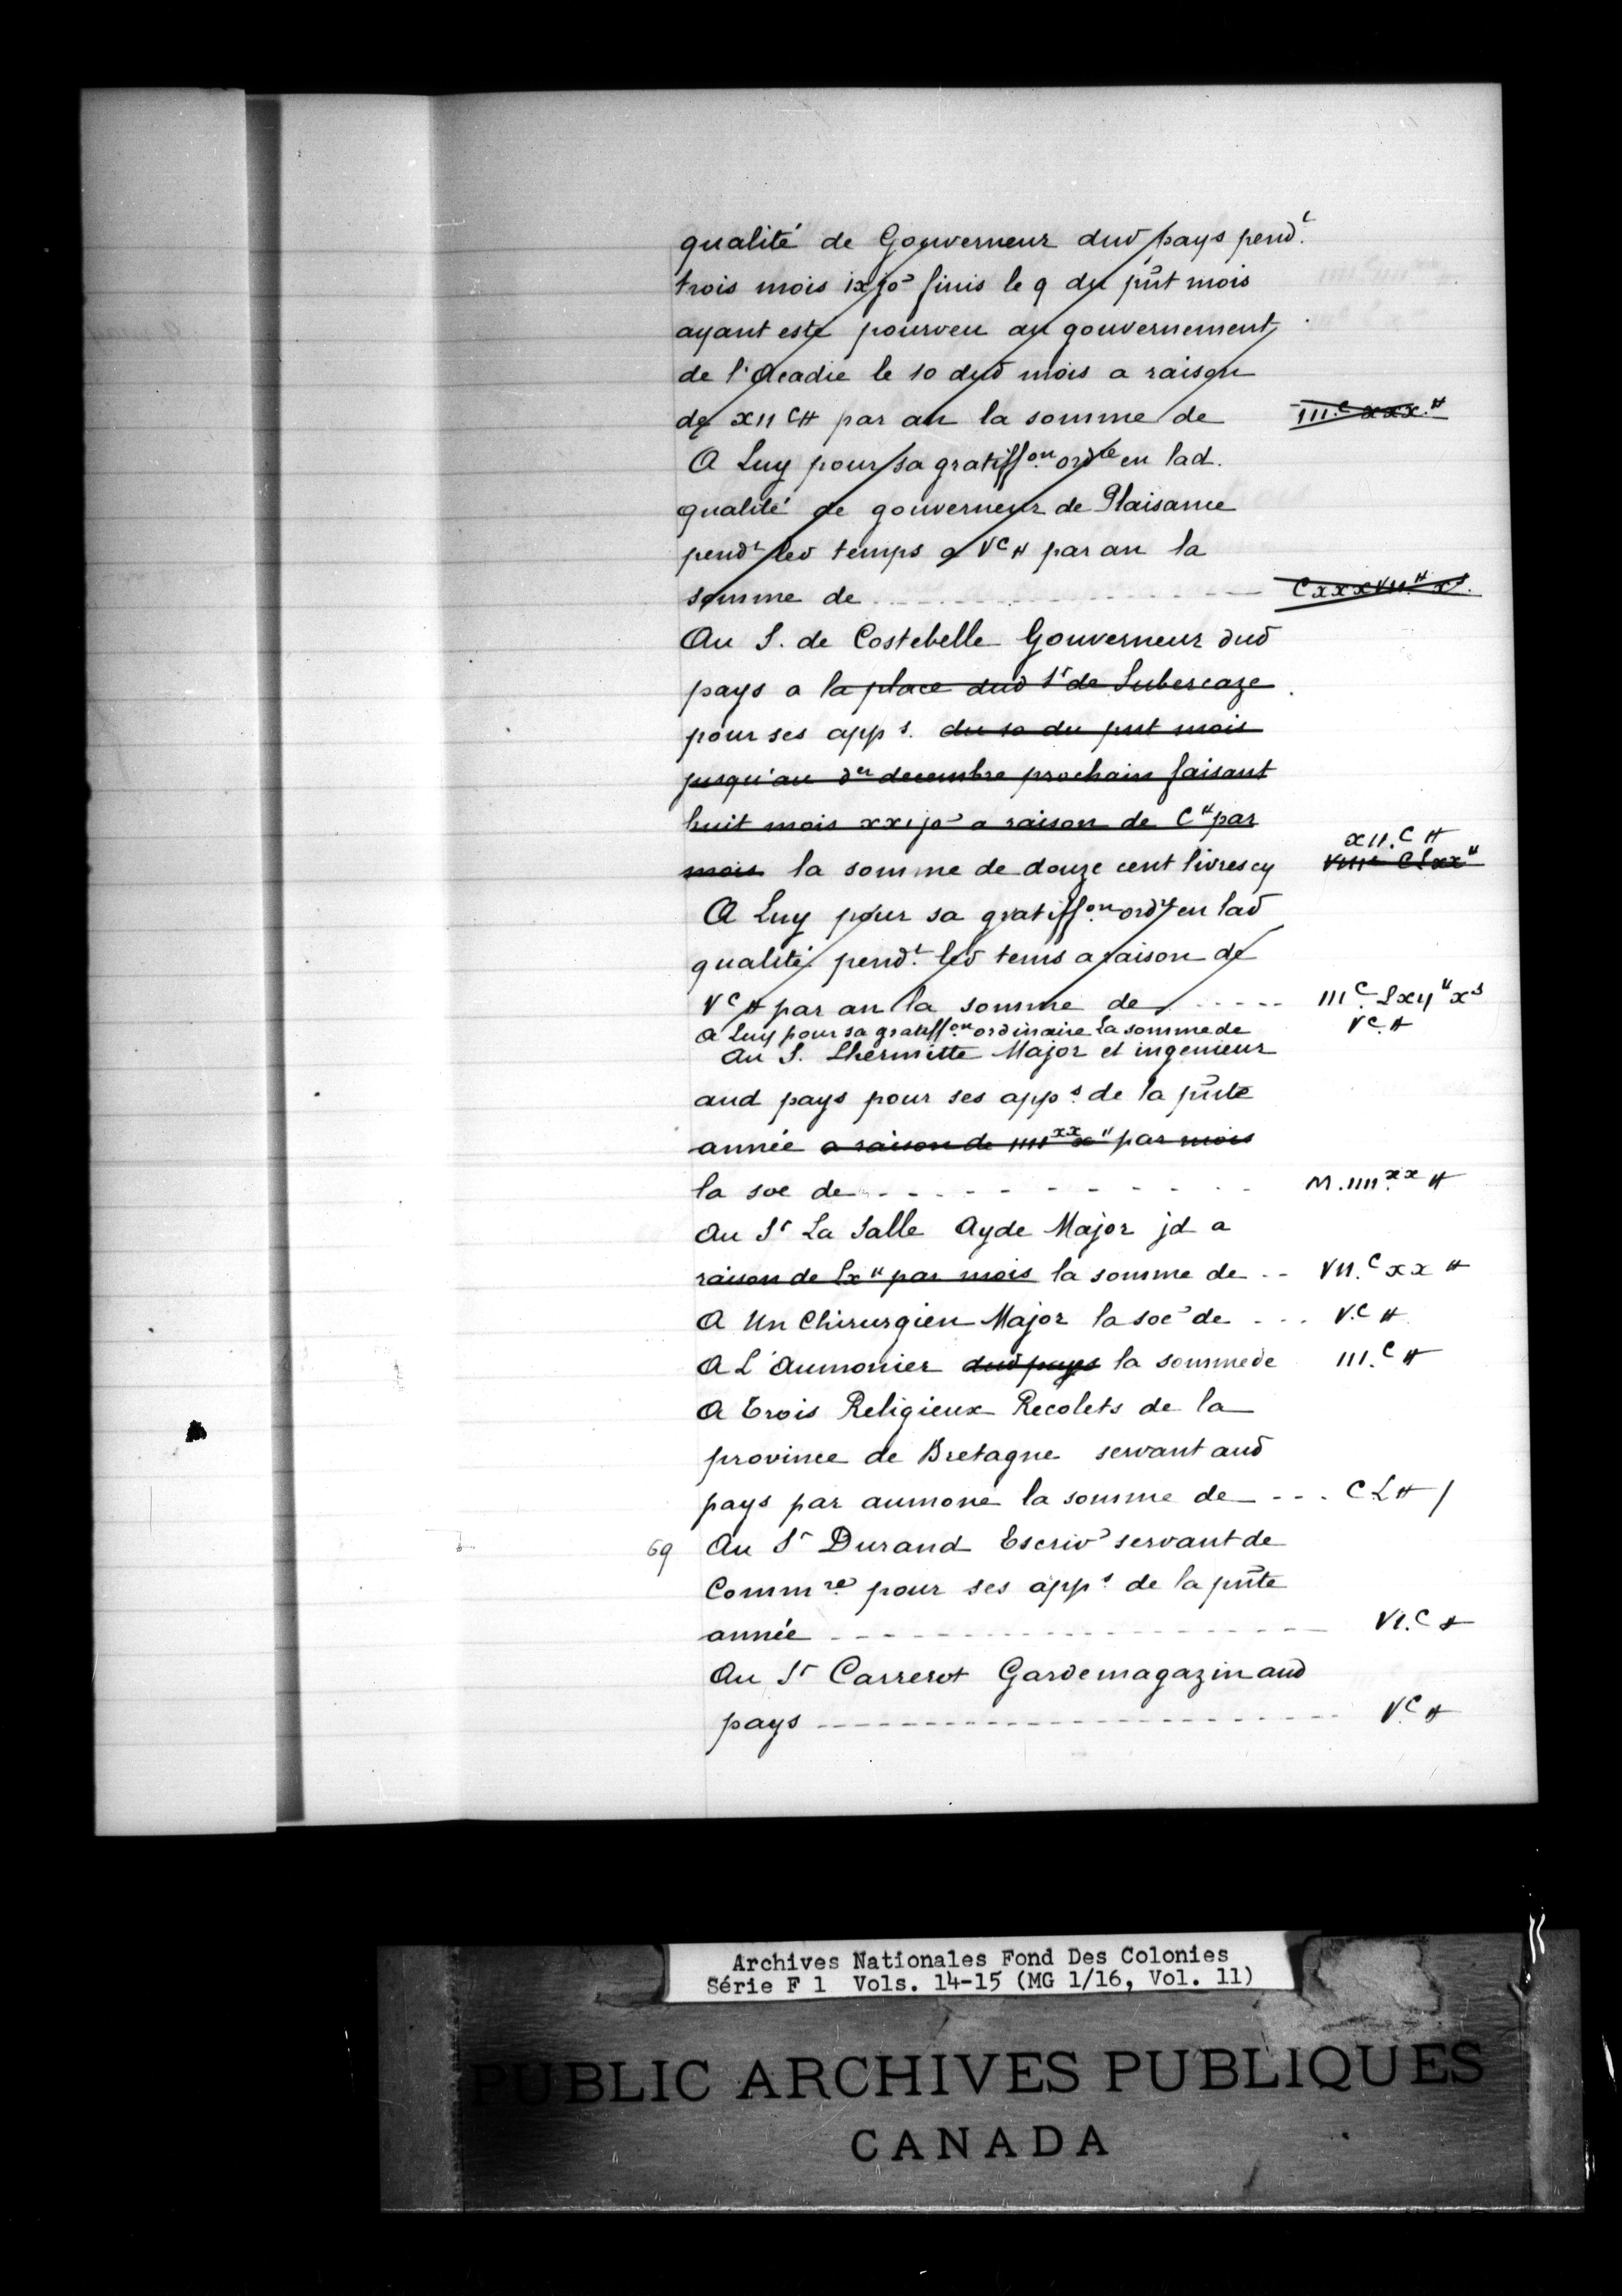 qualité de Gouverneur dud pays pendt
trois mois ix jos finis le 9 du pñt mois
ayant este pourveu au gouvernement
de l'Acadie le 10 dud mois a raison
de xııc# par an la somme de ııı.c xxx.#
A Luy pour sa gratiff.on ordre en lad.
qualité de gouverneur de Plaisance
pendt led temps a vc# par an la
somme de Cxxxvıı.# xs.
Au S. de Costebelle Gouverneur dud
pays a la place dud Sr de Subercaze
pour ses apps. du 10 du pnt mois
jusqu'au der decembre prochain faisant
huit mois xxı jos a raison de C# par
xıı.c #
mois la somme de douze cent livres cy vıııc CLxx#
A Luy pour sa gratiff.on ordre en lad
qualité pendt. led tems a raison de
vc # par an la somme de ıııc. Lxıȷ# xs
a Luy pour sa gratiff.on ordinaire la somme de vc.#
Au S. Lhermitte Major et ingenieur
aud pays pour ses apps. de la pñte
année a raison de ııııxxx# par mois
la soe de M.ıııı.xx #
Au Sr La Salle Ayde Major jd a
raison de Lx# par mois la somme de vıı.c xx #
A Un Chirurgien Major la soe de v.c #
A L'Aumonier dud pays la somme de ııı.c #
A Trois Religieux Recolets de la
province de Bretagne servant aud
pays par aumone la somme de CL# /
69 Au Sr Durand Escrivn servant de
Commre. pour ses apps. de la pñte
année vı.c #
Au Sr Carrerot Gardemagazin aud
pays v.c #
Archives Nationales Fond Des Colonies
Série F 1 Vols. 14-15 (MG 1/16, Vol. 11)
PUBLIC ARCHIVES PUBLIQUES
CANADA